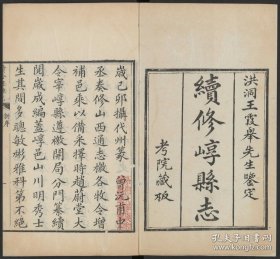 洪洞王霞舉先生鑒定
續修崞縣志
考院藏板
歲己卯攝代州篆
丞奏修山西通志檄各牧令增
補邑乘以備采擇時趙蔚堂大
令宰崞縣遵檄開局分門纂續
閱歲成編蓋崞邑山川明秀士
生其間多聰敏彬雅科第不絕
孔夫子旧书网